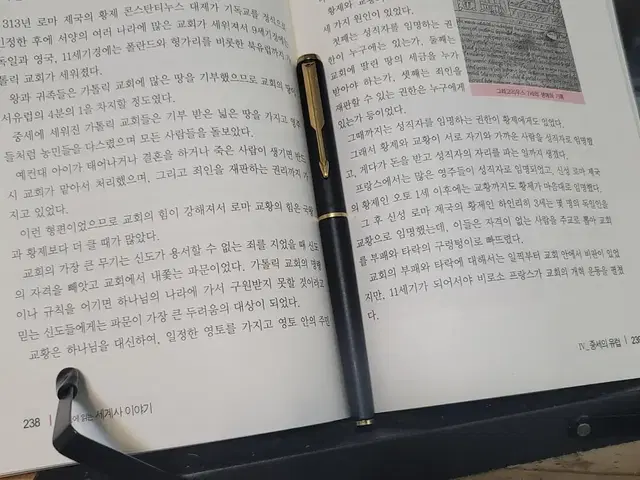 313년 로마 제국의 황제 콘스탄티누스 대제가 기독교를 정식으로
인정한 후에 서양의 여러 나라에 많은 교회가 세워져서 9세기경에는
독일과 영국, 11세기경에는 폴란드와 헝가리를 비롯한 북유럽까지 가
톨릭 교회가 세워졌다.
왕과 귀족들은 가톨릭 교회에 많은 땅을 기부했으므로 교회의 땅이
서유럽의 4분의 1을 차지할 정도였다.
중세에 세워진 가톨릭 교회들은 기부 받은 넓은 땅을 가지고 영주
들처럼 농민들을 다스렸으며 모든 사람들을 돌보았다.
예컨대 아이가 태어나거나 결혼을 하거나 죽은 사람이 생기면 반드
시 교회가 맡아서 처리했으며, 그리고 죄인을 재판하는 권리까지 가
지고 있었다.
이런 형편이었으므로 교회의 힘이 강해져서 로마 교황의 힘은 국왕
과 황제보다 더 클 때가 많았다.
교회의 가장 큰 무기는 신도가 용서할 수 없는 죄를 지었을 때 신도
의 자격을 빼앗고 교회에서 내쫓는 파문이었다. 가톨릭 교회의 명령
이나 규칙을 어기면 하나님의 나라에 가서 구원받지 못할 것이라고
믿는 신도들에게는 파문이 가장 큰 두려움의 대상이 되었다.
교황은 하나님을 대신하여, 일정한 영토를 가지고 영토 안의 주민
238
읽는 세계사 이야기
황제와 교황
세 가지 원인이 있었다.
첫째는 성직자를 임명하는 권
한이 누구에게 있는가, 둘째는
교회에 딸린 땅의 세금을 누가
받아야 하는가, 셋째는 죄인을
재판할 수 있는 권한은 누구에게
있는가 등이었다.
그레고리우스 7세의
그때까지는 성직자를 임명하는 권한이 황제에게도 있었다.
그래서 황제와 교황이 서로 자기와 가까운 사람을 성직자로 임명했
고, 게다가 돈을 받고 성직자의 자리를 파는 일까지 생겼다.
프랑스에서는 많은 영주들이 성직자로 임명되었고, 신성 로마 제국
의 황제인 오토 1세 이후에는 교황까지도 황제가 마음대로 임명했다.
그 후 신성 로마 제국의 황제인 하인리히 3세는 몇 명의 독일인을
교황으로 임명했는데, 이들은 자격이 없는 사람을 주교로 뽑아 교회
를 부패와 타락의 구렁텅이로 빠뜨렸다.
교회의 부패와 타락에 대해서는 일찍부터 교회 안에서 비판이 있었
지만, 11세기가 되어서야 비로소 프랑스가 교회의 개혁 운동을 펼쳤
다.
Ⅳ_중세의 유럽
239